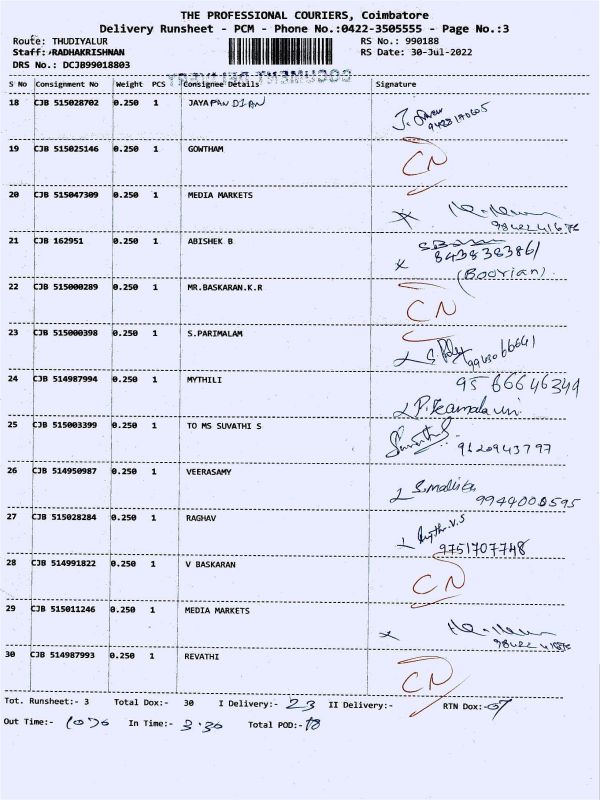 THE PROFESSIONAL COURIERS, Coimbatore
Delivery Runsheet - PCM - Phone No.:0422-3505555 - Page No.:3
Route: THUDIYALUR RS No.: 990188
Staff: RADHAKRISHNAN RS Date: 30-Jul-2022
DRS No.: DCJB99018803
DOCUMENT DELIVERY
S No Consignment No Weight PCS Consignee Details Signature
18 CJB 515028702 0.250 1 JAYAPANDIAN
19 CJB 515025146 0.250 1 GOWTHAM CN
20 CJB 515047309 0.250 1 MEDIA MARKETS
21 CJB 162951 0.250 1 ABISHEK B
8438383861
(Boovian)
22 CJB 515000289 0.250 1 MR.BASKARAN.K.R CN
23 CJB 515000398 0.250 1 S.PARIMALAM
24 CJB 514987994 0.250 1 MYTHILI 9566646349
25 CJB 515003399 0.250 1 TO MS SUVATHI S
9620943797
26 CJB 514950987 0.250 1 VEERASAMY
9944000595
27 CJB 515028284 0.250 1 RAGHAV
9751707748
28 CJB 514991822 0.250 1 V BASKARAN CN
29 CJB 515011246 0.250 1 MEDIA MARKETS
30 CJB 514987993 0.250 1 REVATHI CN
Tot. Runsheet:- 3 Total Dox:- 30 I Delivery:- 23 II Delivery:- RTN Dox:-07
Out Time:- In Time:- 3.30 Total POD:-